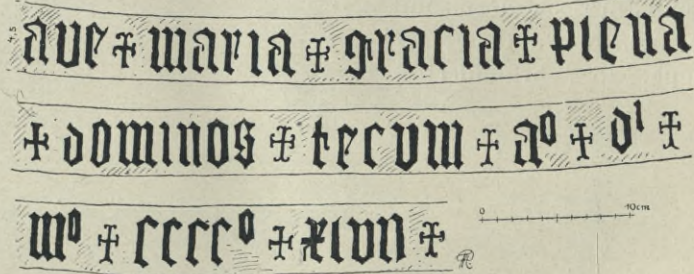 ave + maria + gracia + plena
+ dominos + tecvm + aº + dⁱ +
mº + ccccº + xlvii +
0 10cm
4,5